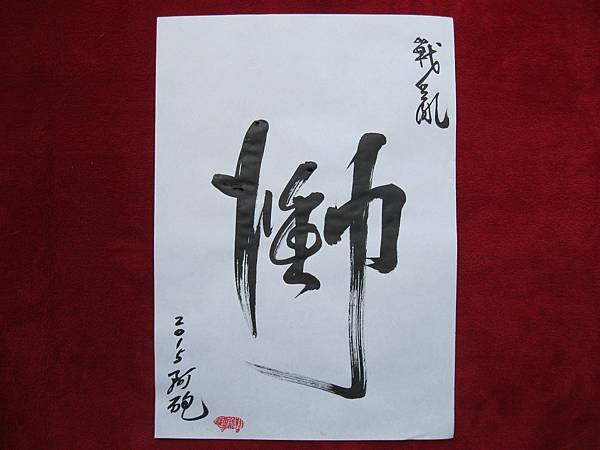 戰亂
慟
2015阿砲